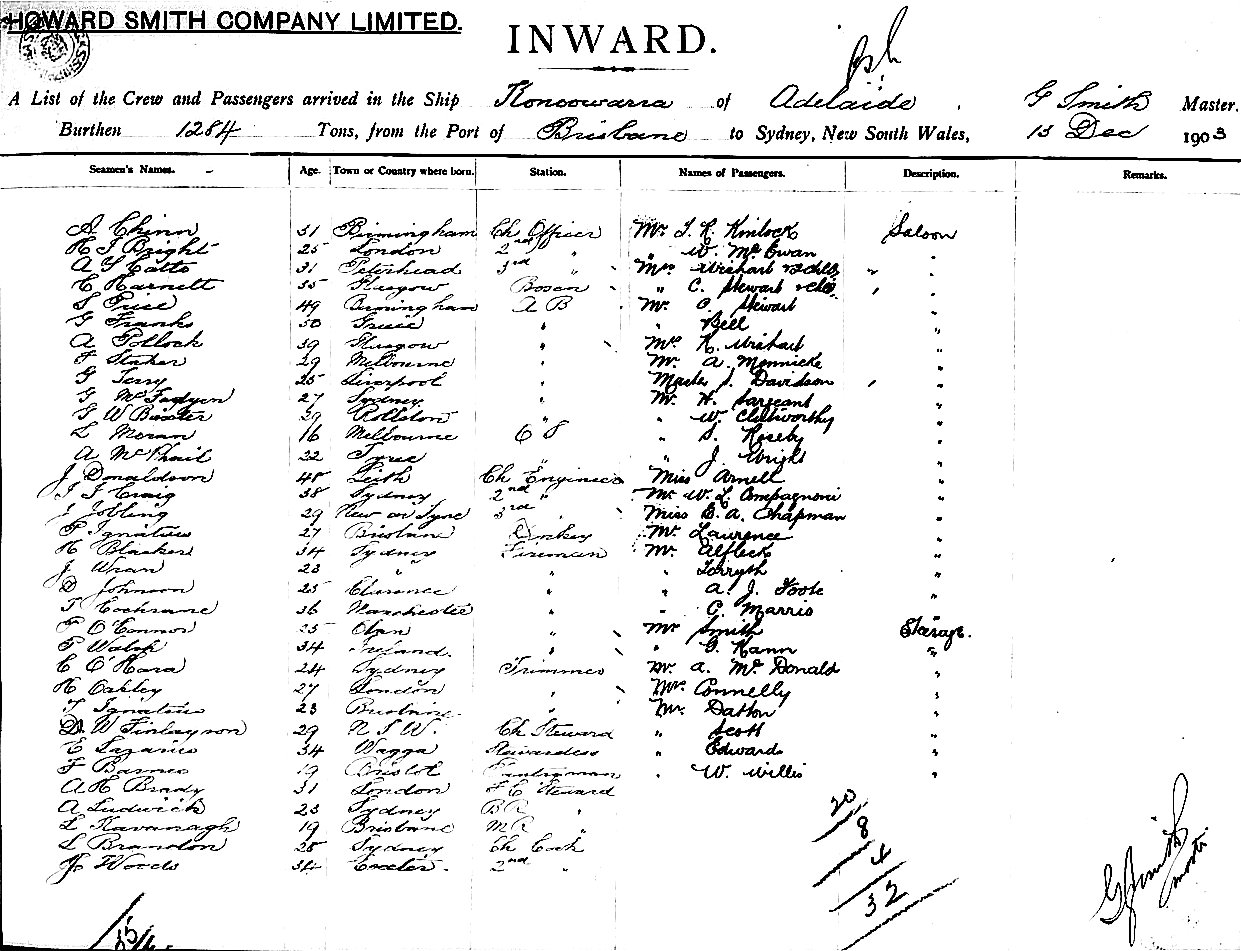 HOWARD SMITH COMPANY LIMITED.
INWARD.
A List of the Crew and Passengers arrived in the Ship Konoowarra of Adelaide, G Smith Master.
Burthen 1284 Tons, from the Port of Brisbane to Sydney, New South Wales, 13 Dec 1903
Seamen's Names. Age. Town or Country where born. Station. Names of Passengers. Description. Remarks.
A. Chinn 31 Birmingham Ch Officer Mr Kinlock Saloon
H J Bright 25 London 2nd " " W. McEwan "
A Catto 31 Peterhead 3rd " Mrs Urichart "
C Harnett 35 Glasgow Bosen " C. Stewart "
S Price 49 Birmingham A B Mr C. Stewart "
G Franks 50 " " Bell "
A Pollock 39 Glasgow " K. Urichart "
F Staker 29 Melbourne " Mr. A. Mennicke "
G Terry 25 Liverpool " Master J. Davidson "
G McFadyen 27 Sydney " Mr. H. Sargeant "
G W Baxter 29 " " W. Chitworthy "
L Moran 16 Melbourne O S " S. Roseby "
A McPhail 22 Tyree " " J. Wright "
J Donaldson 48 Leith Ch Engineer Miss Arnell "
J J Craig 38 Sydney 2nd " Mr W. L. Compagnoni "
J Jobling 29 New on Tyne 3rd " Miss E. A. Chapman "
P Ignatius 27 Brisbane Donkey Mr Laurence "
H Blacker 34 Sydney Fireman Mr. Alfleck "
J. Wran 23 " " " "
D Johnson 25 Clarence " " A. J. Foote "
T Cochrane 36 Manchester " " C. Marris "
P O'Connor 25 " Mr Smith Steerage.
P Walsh 34 Ireland. " " Hann "
C O'Hara 24 Sydney Trimmer Mr. A. McDonald "
H Oakley 27 London " Mrs Connelly "
Ignatius 23 Brisbane " Mr. Datton "
D. W Finlayson 29 N S W. Ch Steward " Scott "
E Lazarus 34 Wagga Stewardess " Edward "
F Barnes 19 Bristol Pantryman " W. Willis "
A H Brady 31 London Steward
A Ludwick 23 Sydney B R "
L Kavanagh 19 Brisbane M R "
L Brandon 28 Sydney Ch Cook
J. Woods 34 Exeter. 2nd "
20
8
4
32
G Smith
master